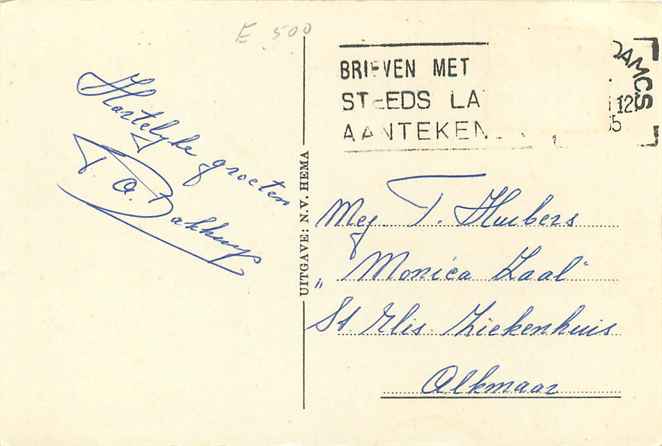 E 500
BRIEVEN MET
STEEDS LA
AANTEKEN
DAMCS
12
5
Hartelijke groeten
T. A. Bakkum
UITGAVE: N.V. HEMA
Mej T. Huibers
„Monica Zaal"
St Elis Ziekenhuis
Alkmaar